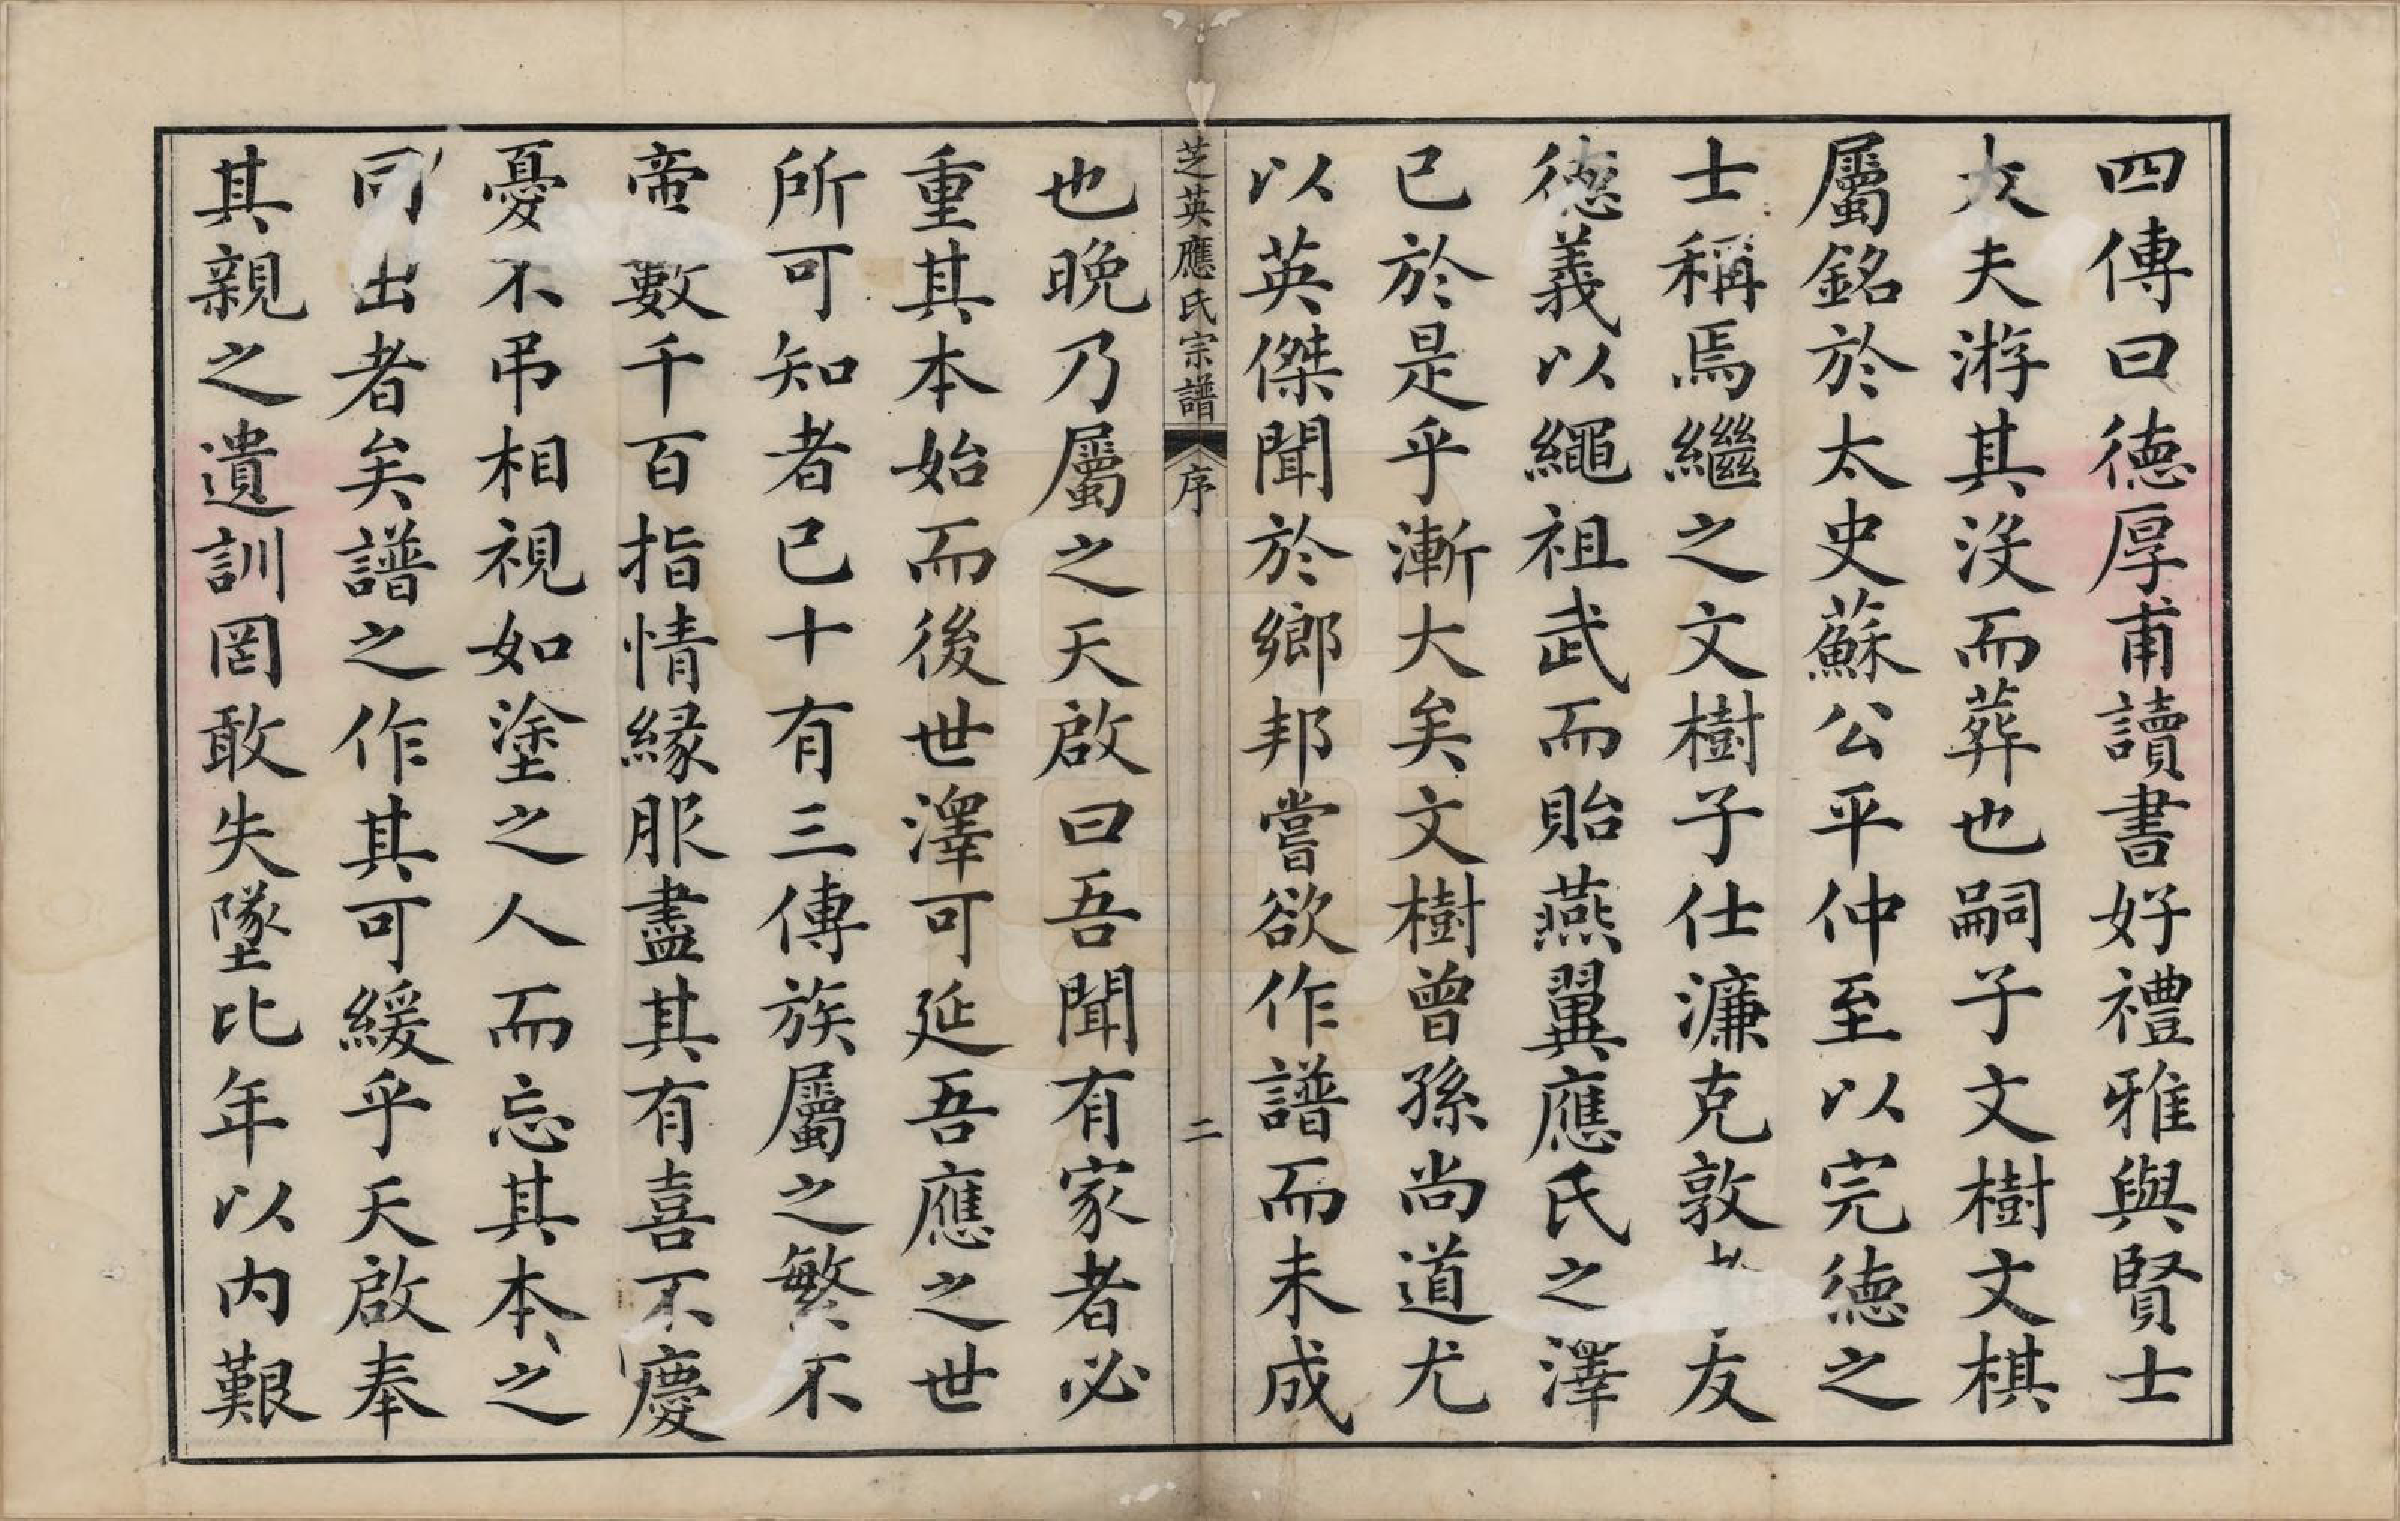 四傳曰德厚甫讀書好禮雅與賢士
大夫游其沒而葬也嗣子文樹文棋
屬銘於太史蘇公平仲至以完德之
士稱焉繼之文樹子仕濂克敦孝友
德義以繩祖武而貽燕翼應氏之澤
已於是乎漸大矣文樹曾孫尚道尤
以英傑聞於鄉邦嘗欲作譜而未成
芝英應氏宗譜
序
二
也晚乃屬之天啟曰吾聞有家者必
重其本始而後世澤可延吾應之世
所可知者已十有三傳族屬之繁不
帝數千百指情緣服盡其有喜不慶
憂不弔相視如塗之人而忘其本之
同出者矣譜之作其可緩乎天啟奉
其親之遺訓罔敢失墜比年以內艱